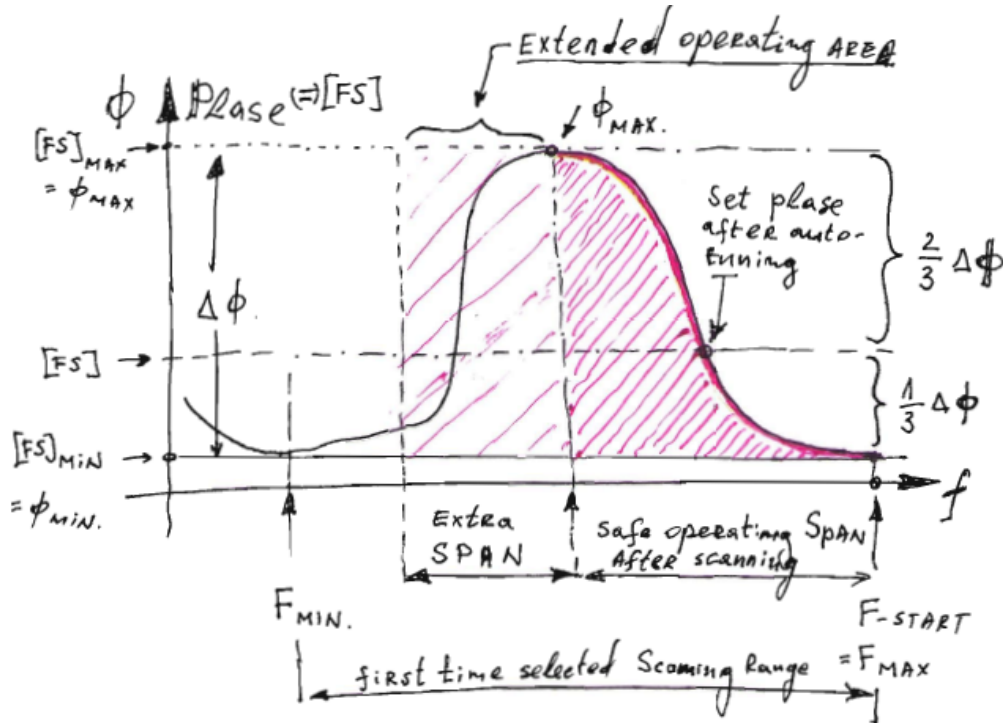 Extended operating AREA
ϕ Plase (=) [FS]
ϕ MAX.
[FS] MAX
= ϕ MAX
Set plase
after auto-
tunning
2/3 Δϕ
Δϕ.
[FS]
1/3 Δϕ
[FS] MIN
= ϕ MIN.
f
Extra
SPAN
Safe operating SPAN
After scanning
F MIN.
F-START
= F MAX
first time selected Scaming Range